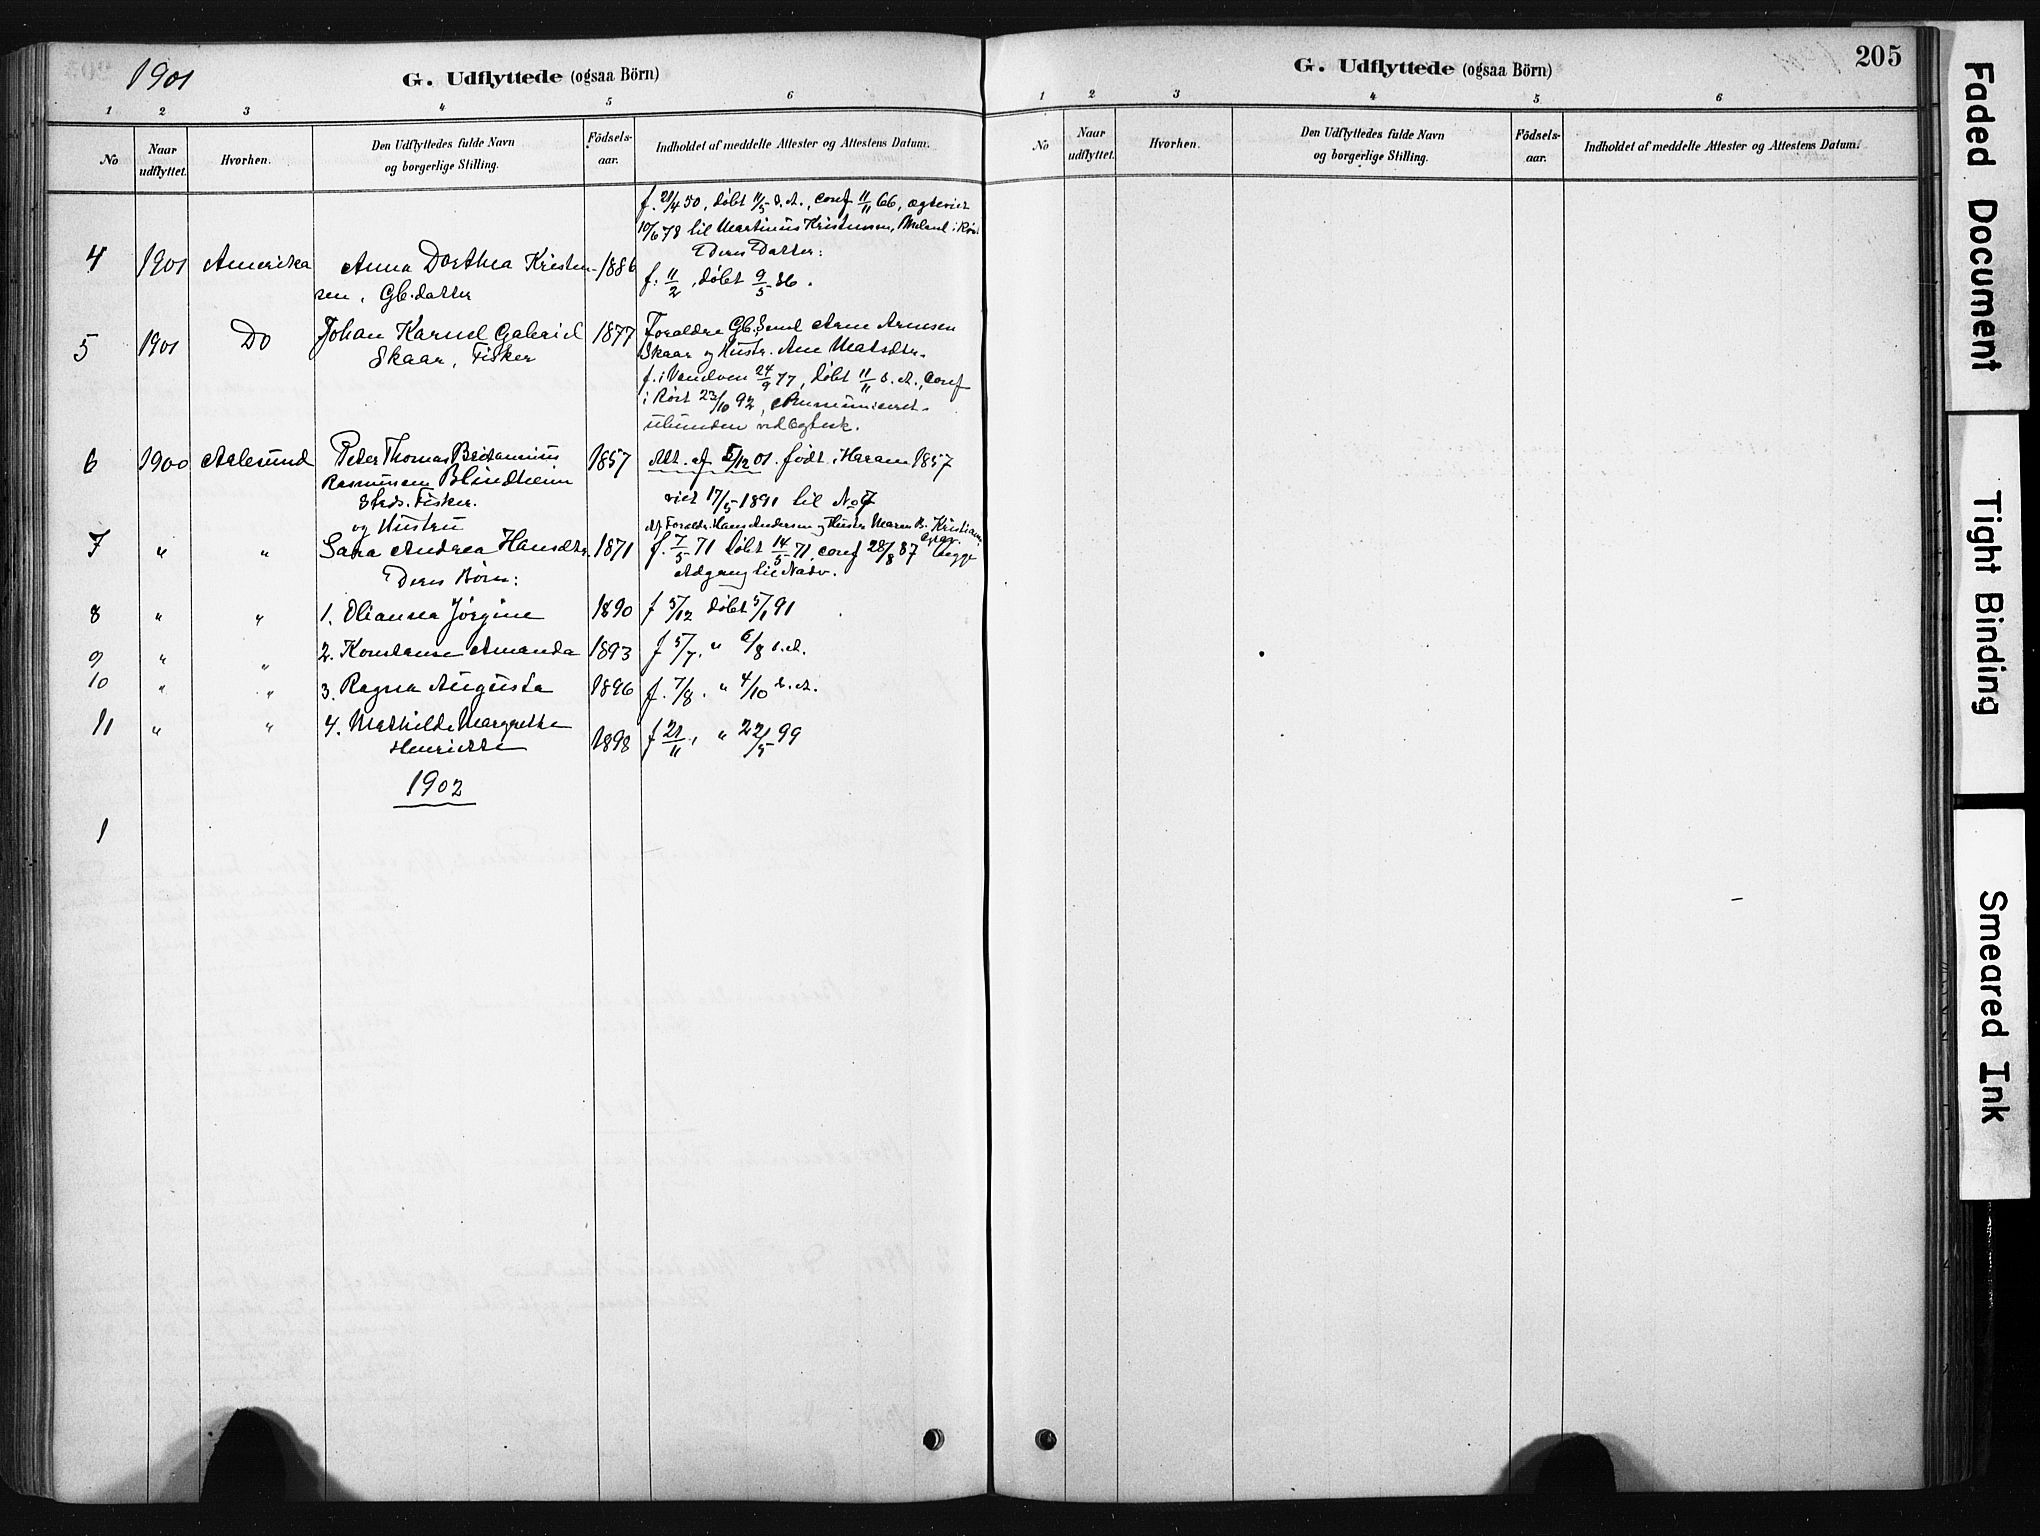 1901
G. Udflyttede (ogsaa Börn)
1 2 3 4 5 6
No
Naar udflyttet.
Hvorhen.
Den Udflyttedes fulde Navn og borgerlige Stilling.
Födsels-aar.
Indholdet af meddelte Attester og Attestens Datum.
f. 28/4 50, døbt 11/5 s. A., conf 11/11 66, ægteviet
10/6 78 til Martinus Kristensen,
Deres Datter:
4 1901 Amerika Anna Dorthea Kristen- 1886 f. 11/2, døbt 9/5 86.
sen, Gb.datter
5 1901 Do Johan Karnel Gabriel 1877 Forældre Gb. Arne Arnesen
Skaar, Fisker Skaar og Hustr. Ane Matsdtr.
f. i 24/9 77, døbt 11/11 s. A., conf
23/10 92,
ubunden ved Ægtesk.
6 1900 Aalesund Peter Thomas Beritanius 1857 Att. af 5/12 01. født i Haram 1857
Rasmussen Blindheim
Strds. Fisker. viet 17/5 1891 til No 7
og Hustru Af Forældr. Hans Andersen og Hustr. Maren B. Kristians
7 " " Sara Andrea Hansdtr 1871 f. 7/5 71 døbt 14/5 71, conf 28/8 87 begge
Deres Børn: Adgang til Nadv.
8 " " 1. Oliansea Jørgine 1890 f 5/12 døbt 5/1 91
9 " " 2. Konstanse Amanda 1893 f 5/7. " 6/8 s. A.
10 " " 3. Ragna Augusta 1896 f. 7/8. " 4/10 s. A.
11 " " 4. Mathilde Margrethe
Henriette 1898 f 21/11, " 22/5 99
1902
1
G. Udflyttede (ogsaa Börn)
205
1 2 3 4 5 6
No
Naar udflyttet.
Hvorhen.
Den Udflyttedes fulde Navn og borgerlige Stilling.
Födsels-aar.
Indholdet af meddelte Attester og Attestens Datum.
Faded Document
Tight Binding
Smeared Ink